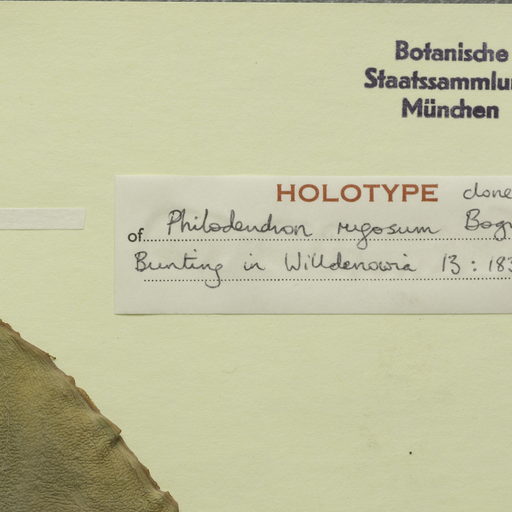 Botanische
Staatssammlu
München
HOLOTYPE clone
of Philodendron rugosum Bogn
Bunting in Willdenowia 13 : 183